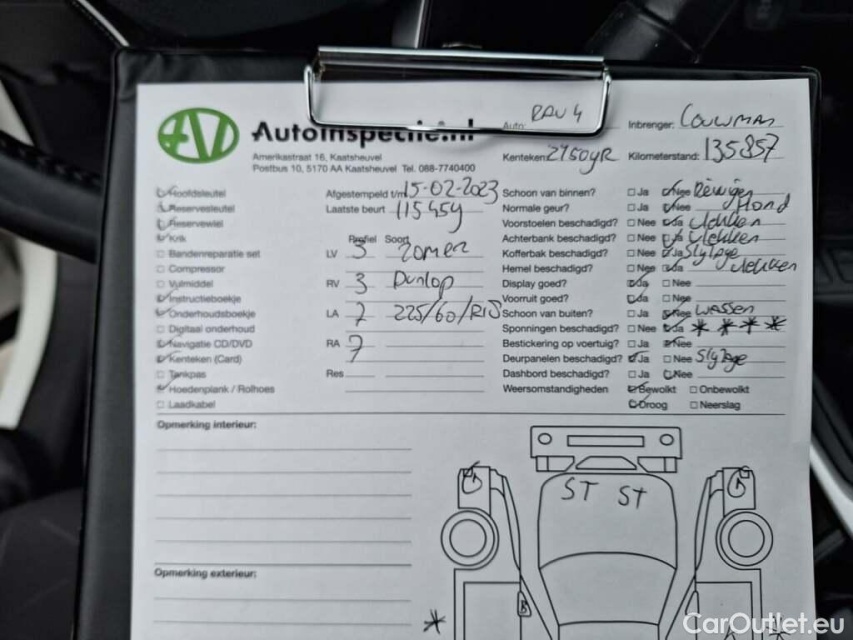 AVI Autoinspectie.nl
Amerikastraat 16, Kaatsheuvel
Postbus 10, 5170 AA Kaatsheuvel Tel. 088-7740400
Auto: RAV 4
Inbrenger:
Kenteken:
Kilometerstand: 135857
Hoofdsleutel
Reservesleutel
Reservewiel
Krik
Bandenreparatie set
Compressor
Vulmiddel
Instructieboekje
Onderhoudsboekje
Digitaal onderhoud
Navigatie CD/DVD
Kenteken (Card)
Tankpas
Hoedenplank / Rolhoes
Laadkabel
Afgestempeld t/m 15-02-2023
Laatste beurt 115459
Profiel Soort
LV 3 zomer
RV 3 Dunlop
LA 7 225/60/R18
RA 7
Res
Schoon van binnen? Ja Nee Reinigen
Normale geur? Ja Nee Hond
Voorstoelen beschadigd? Nee Ja vlekken
Achterbank beschadigd? Nee Ja vlekken
Kofferbak beschadigd? Nee Ja Slytage
Hemel beschadigd? Nee Ja vlekken
Display goed? Ja Nee
Voorruit goed? Ja Nee
Schoon van buiten? Ja Nee wassen
Sponningen beschadigd? Nee Ja ****
Bestickering op voertuig? Ja Nee
Deurpanelen beschadigd? Ja Nee Slytage
Dashbord beschadigd? Ja Nee
Weersomstandigheden Bewolkt Onbewolkt
Droog Neerslag
Opmerking interieur:
ST ST
Opmerking exterieur:
*
CarOutlet.eu